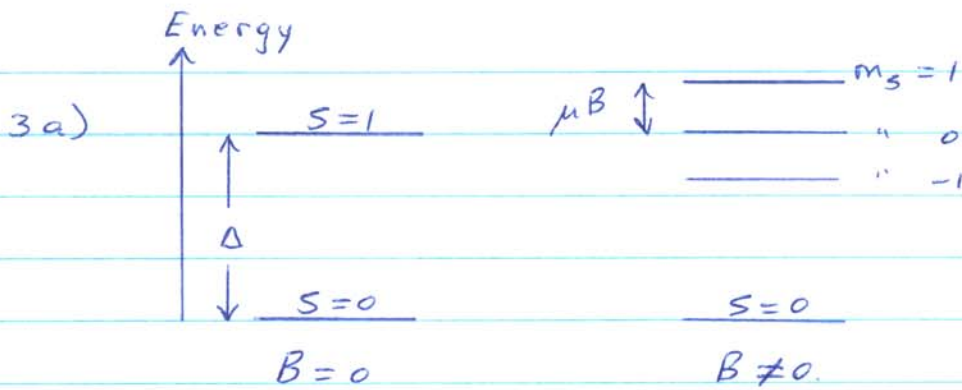 Energy
3a)
S=1
Δ
S=0
B=0
μB
m_s = 1
" 0
" -1
S=0
B≠0.